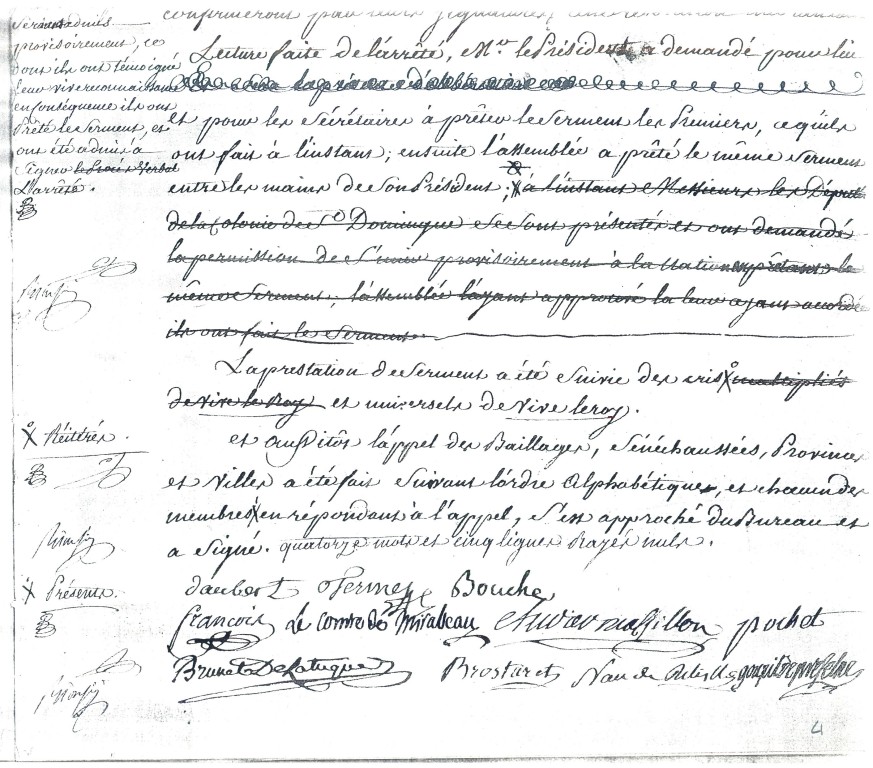 confirmeront par leurs signatures
Serment admis
provisoirement, ce
dont ils ont témoigné
leur vive reconnaissance
en conséquence ils ont
Prêté le Serment, et
ont été admis à
Signer le Procès Verbal
L'arrêté.
Lecture faite de l'arrêté, Mr. le Président a demandé pour lui
et pour les Sécrétaires à prêter le Serment les Premiers, ce qu'ils
ont fait à l'instant; ensuite l'assemblée a prêté le même Serment
entre les mains de Son Président; à l'instant Messieurs les Députés
de la Colonie de St Domingue se sont présentés et ont demandé
la permission de s'unir provisoirement à la Nation en prêtant le
même Serment; l'assemblée l'ayant approuvé la leur ayant accordé
ils ont fait le Serment
La prestation de Serment a été Suivie des cris multipliés
de vive le Roy et universels de Vive le roy.
X Réitérés.
et aussitôt l'appel des Baillages, Sénéchaussées, Provinces
et Villes a été fait Suivant l'ordre Alphabétique, et chacun des
membres en répondant à l'appel, S'est approché du Bureau et
a Signé. quatorze mots et cinq lignes Rayés nuls.
X Présents.
daubert Bouche
françois Le comte de Mirabeau pochet
Brunet De Latuque Brostaret
4